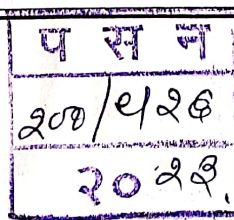 प स न
२००/५२६
२०२३